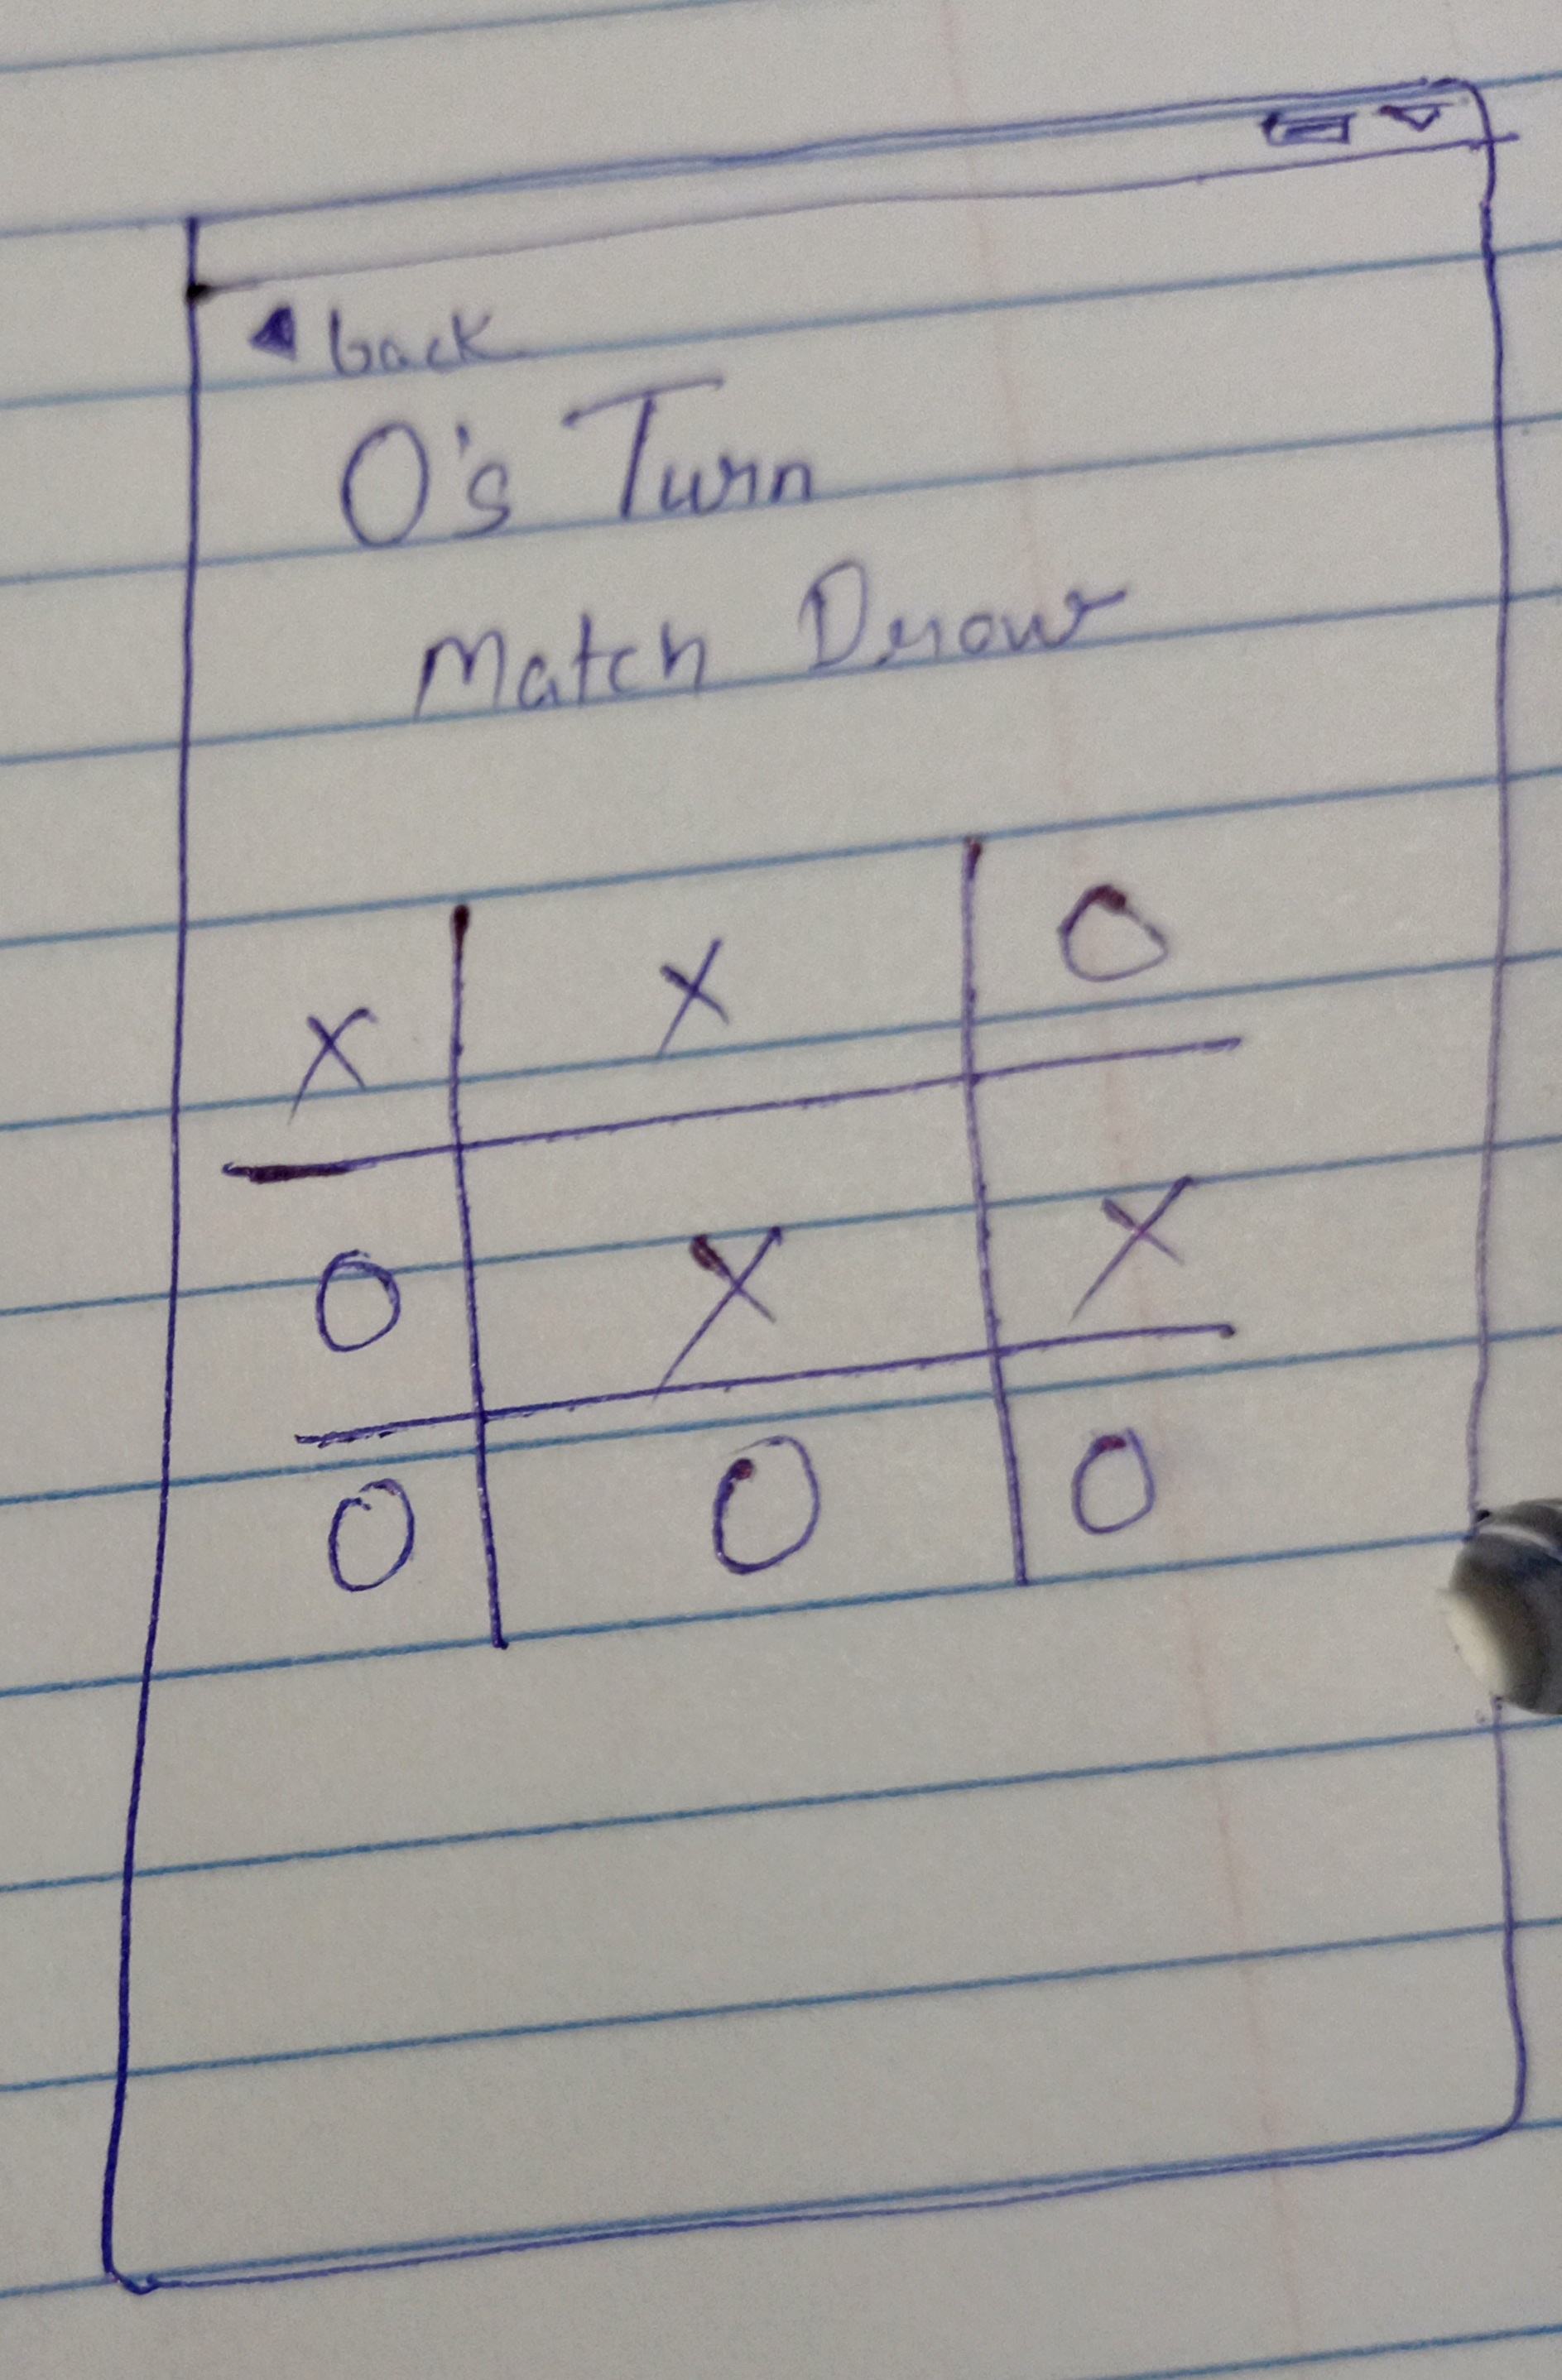 back
O's Turn
Match Draw
X X O
O X X
O O O